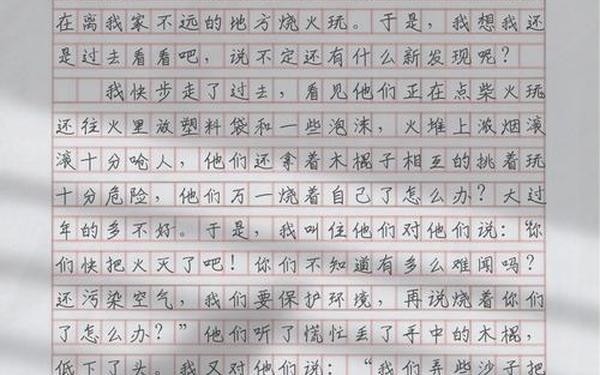 在离我家不远的地方烧火玩。于是，我想我还
是过去看看吧，说不定还有什么新发现呢？
我快步走了过去，看见他们正在点柴火玩
还往火里放塑料袋和一些泡沫，火堆上浓烟滚
滚十分呛人，他们还拿着木棍子相互的挑着玩
十分危险，他们万一烧着自己了怎么办？大过
年的多不好。于是，我叫住他们对他们说：“你
们快把火灭了吧！你们不知道有多么难闻吗？
还污染空气，我们要保护环境，再说烧着你们
了怎么办？”他们听了慌忙丢了手中的木棍，
低下了头。我又对他们说：“我们弄些沙子把